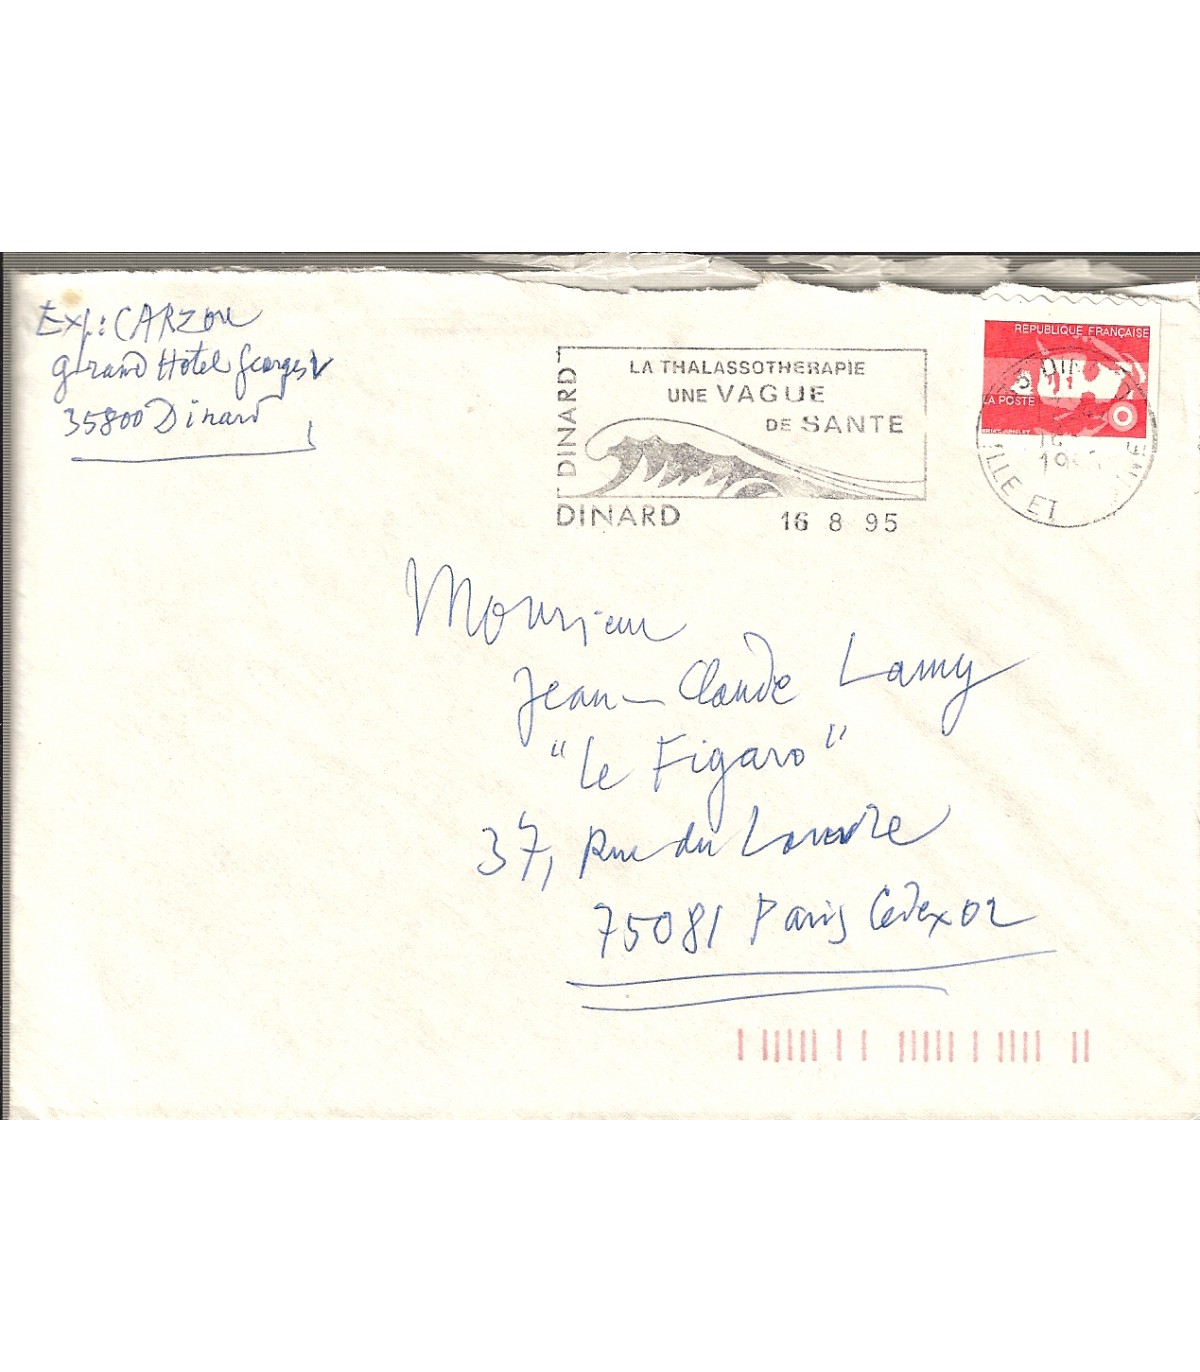 Exp: CARZOU
Grand Hôtel Georges V
35800 Dinard
DINARD
LA THALASSOTHERAPIE
UNE VAGUE
DE SANTE
DINARD 16 8 95
RÉPUBLIQUE FRANÇAISE
LA POSTE
1995
ILLE ET
Monsieur
Jean-Claude Lamy
"Le Figaro"
37, Rue du Louvre
75081 Paris Cedex 02